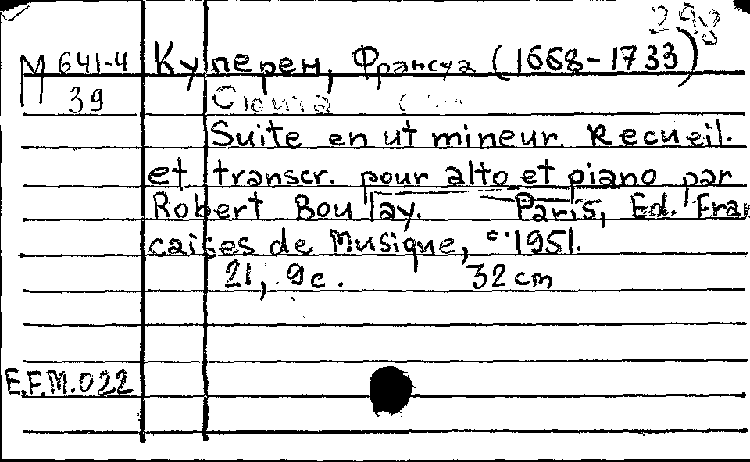 298
M 641-4 Куперен, Франсуа (1668-1733)
39 Сюита
Suite en ut mineur. Recueil.
et transcr. pour alto et piano par
Robert Boulay. Paris, Ed. Fran
caises de Musique, c.1951.
21, 9c. 32 cm
E.F.M.022